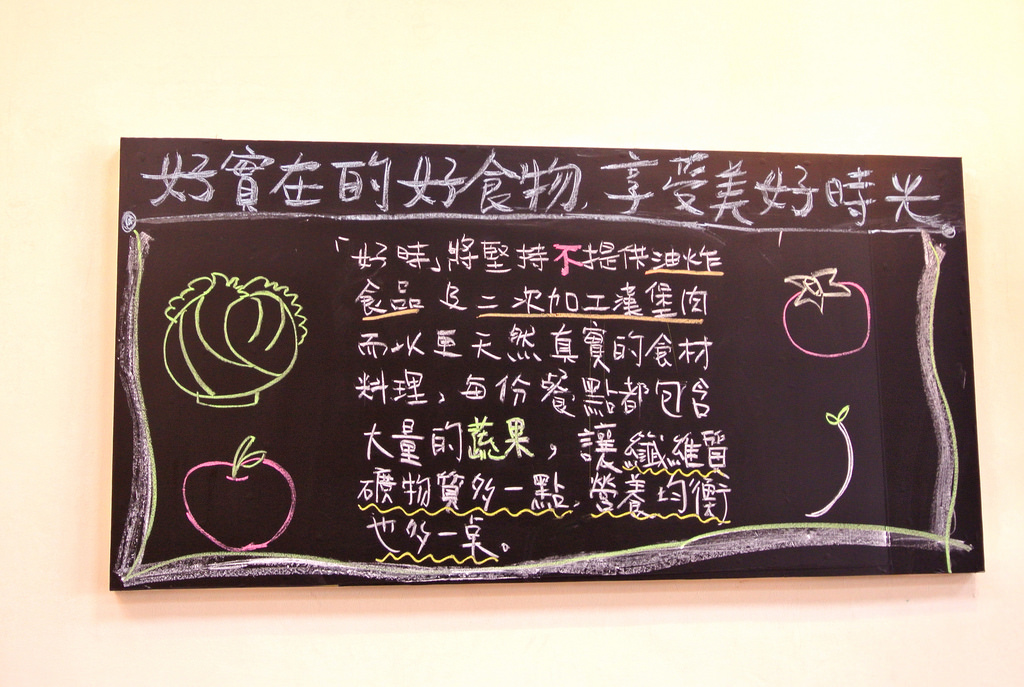 好實在的好食物,享受美好時光
「好時」將堅持不提供油炸
食品及二次加工漢堡肉
而以更天然真實的食材
料理,每份餐點都包含
大量的蔬果,讓纖維質
礦物質多一點,營養均衡
也多一桌。